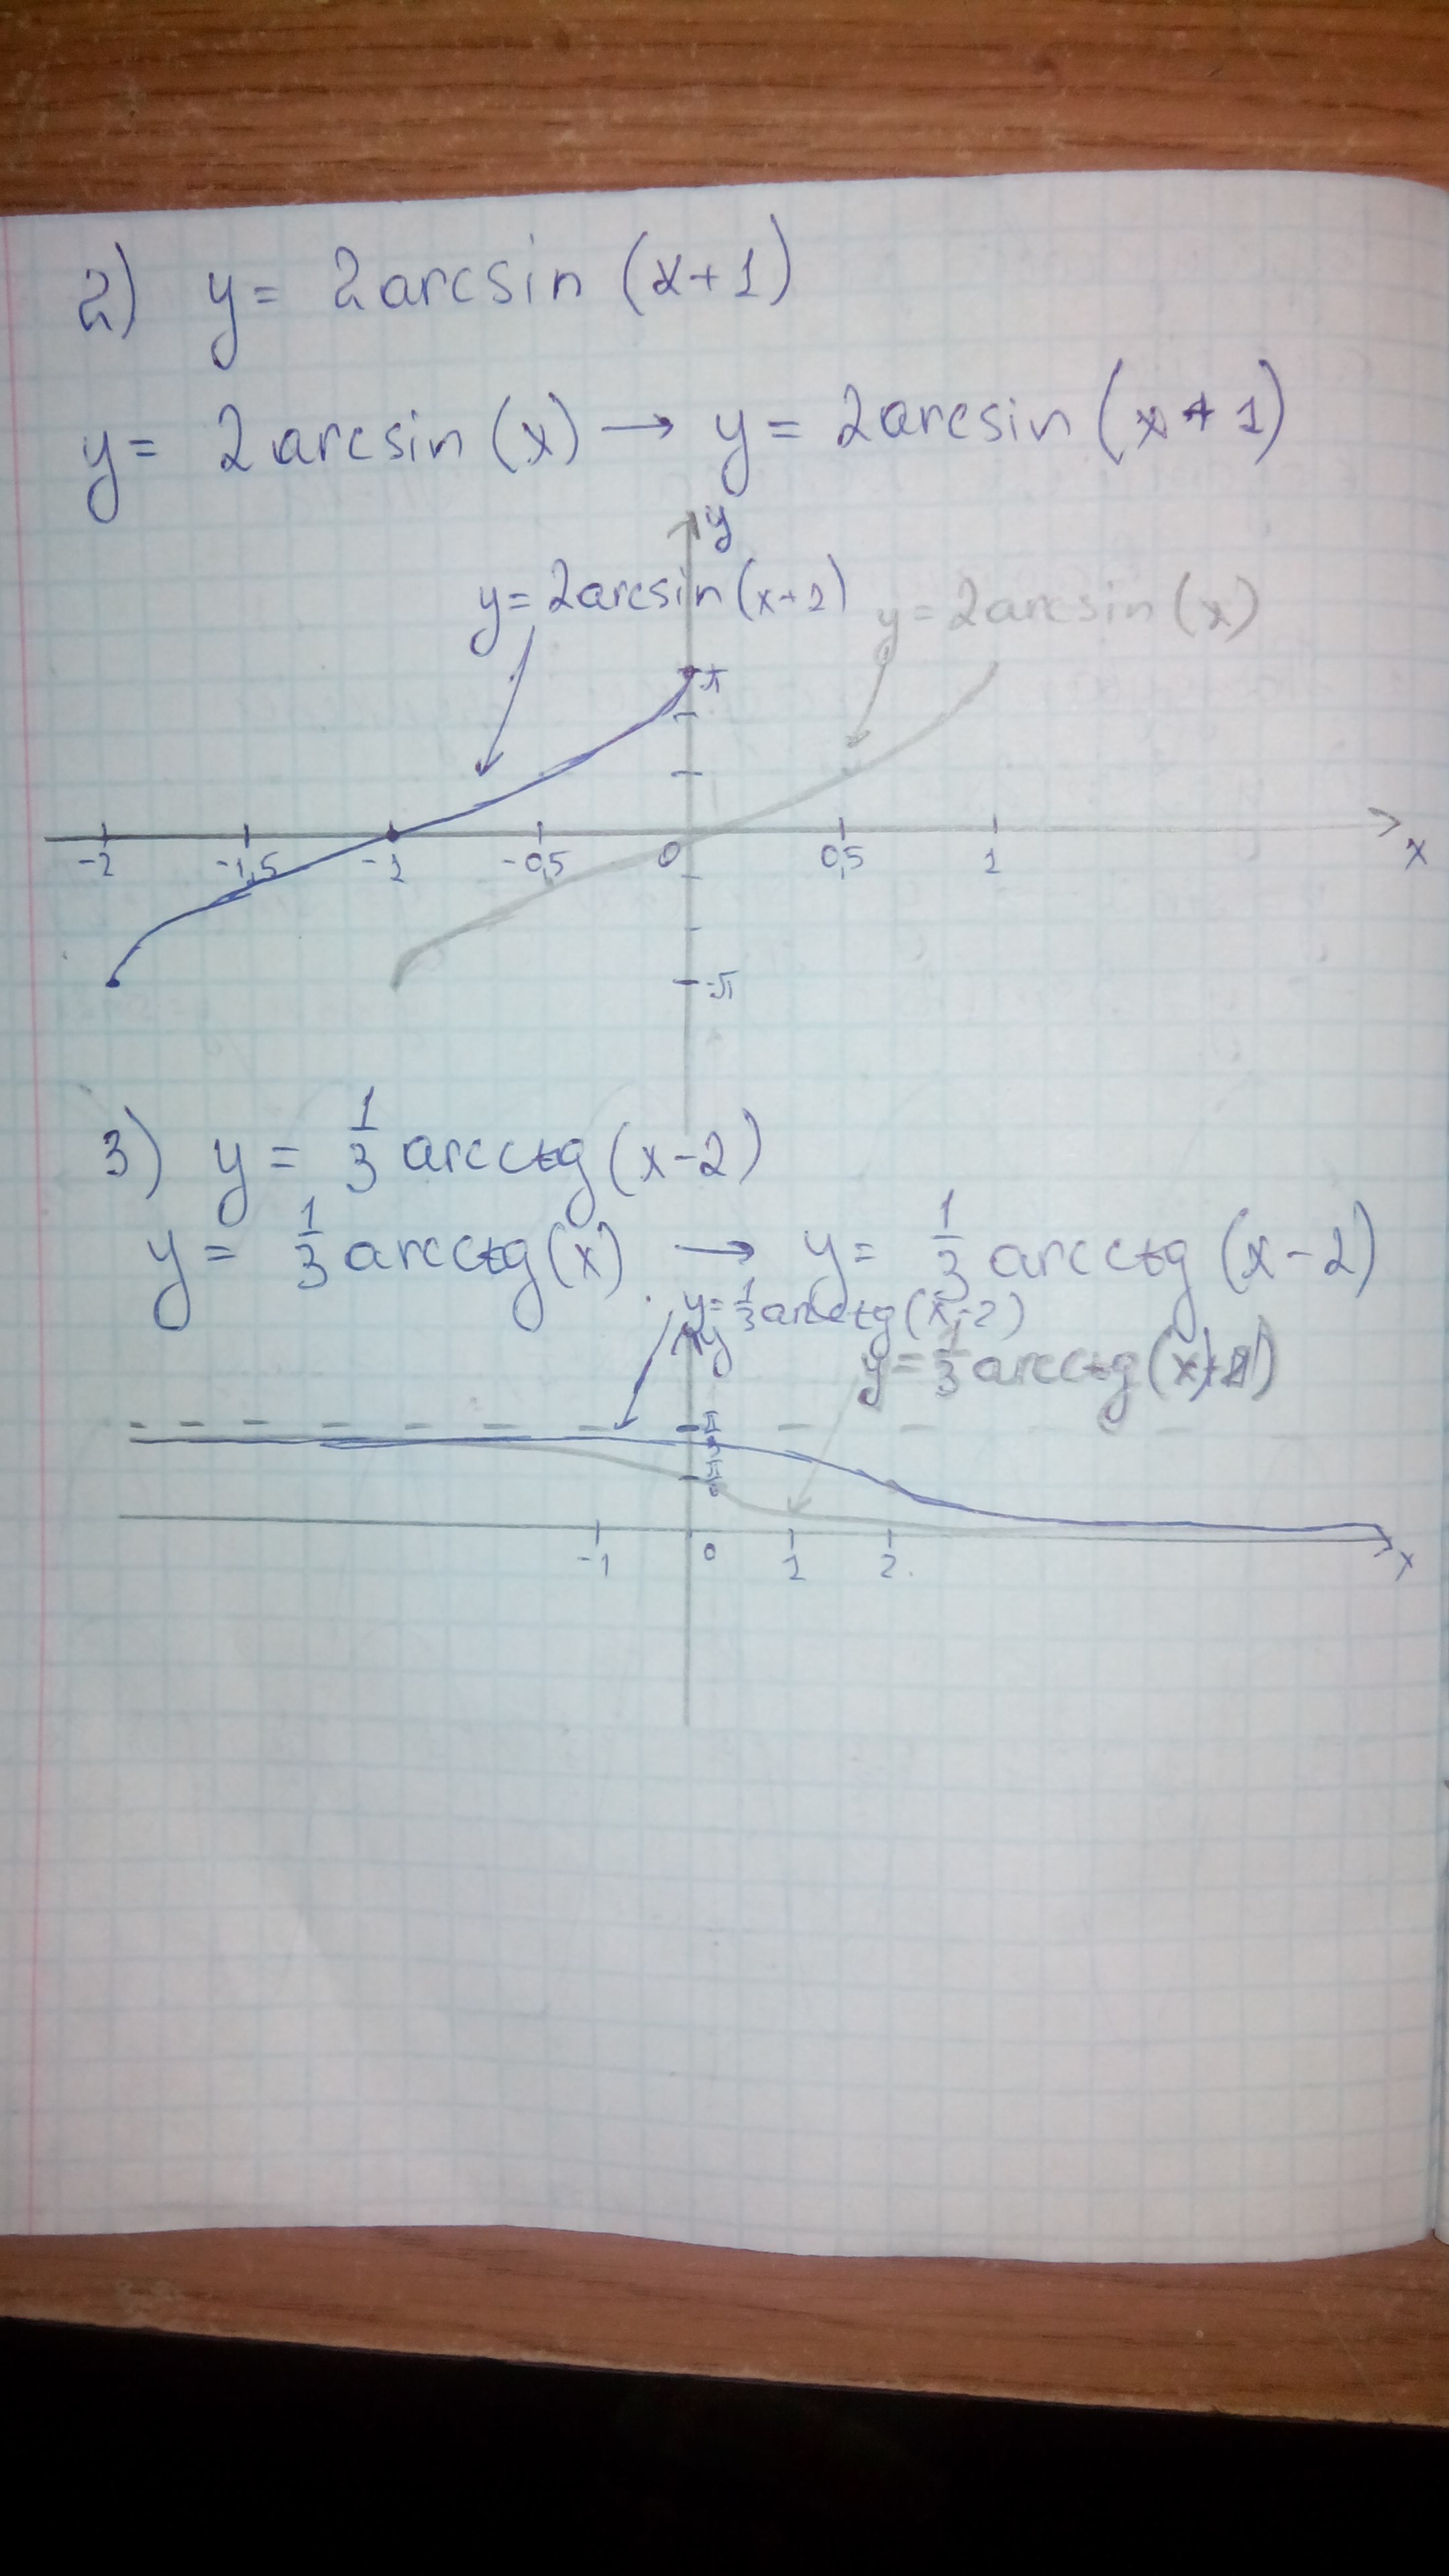 2) y = 2 arcsin (x+1)
y = 2 arcsin (x) → y = 2 arcsin (x + 1)
y
y = 2 arcsin (x+2) y = 2 arcsin (x)
π
-2 -1,5 -1 -0,5 0 0,5 1 x
-π
3) y = 1/3 arcctg (x-2)
y = 1/3 arcctg (x) → y = 1/3 arcctg (x-2)
y = 1/3 arcctg (x-2)
y
y = 1/3 arcctg (x)
π/3
π/6
-1 0 1 2 x